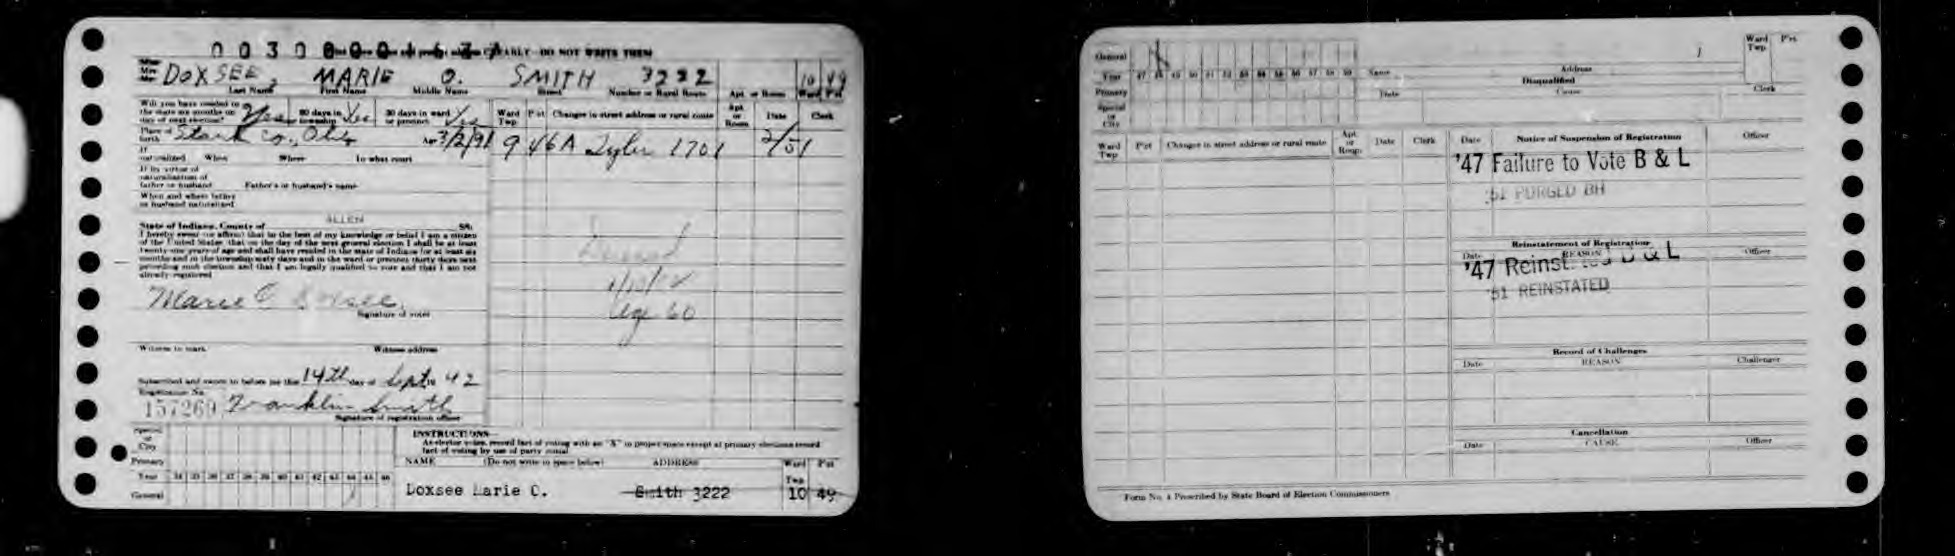 CLEARLY DO NOT WRITE THEM
Miss
Mrs
Mr
DOXSEE, MARIE O. SMITH 3222 10 49
Last Name First Name Middle Name Street Number or Rural Route Apt. or Room Ward Pct
Will you have resided in the state six months on day of next election? Yes 60 days in township Yes 30 days in ward or precinct Yes
Ward Twp Pct Changes in street address or rural route Apt. or Room Date Clerk
Place of birth Stark Co., Ohio Age 3/2/91 9 46A Tyler 1701 2/51
If naturalized When Where In what court
If by virtue of naturalization of father or husband Father's or husband's name
When and where father or husband naturalized
ALLEN
State of Indiana, County of SS:
I hereby swear (or affirm) that to the best of my knowledge or belief I am a citizen
of the United States, that on the day of the next general election I shall be at least
twenty-one years of age and shall have resided in the state of Indiana for at least six
months and in the township sixty days and in the ward or precinct thirty days next
preceding such election and that I am legally qualified to vote and that I am not
already registered
Deceased
Age 60
Marie O Doxsee
Signature of voter
Witness to mark Witness address
Subscribed and sworn to before me this 14th day of Sept 19 42
Registration No.
157269 Franklin Smith
Signature of registration officer
INSTRUCTIONS
As elector votes, record fact of voting with an "X" in proper space except at primary elections record
fact of voting by use of party initial
Special or City
Primary
Year 34 35 36 37 38 39 40 41 42 43 44 45 46
General
NAME (Do not write in space below) ADDRESS Ward Twp Pct
Doxsee Marie O. Smith 3222 10 49
General
Year 47 48 49 50 51 52 53 54 55 56 57 58 59
Primary
Special or City
Name Address Ward Twp. Pct.
Disqualified
Date Cause Clerk
Ward Twp Pct Changes in street address or rural route Apt. or Room Date Clerk
Date Notice of Suspension of Registration Officer
'47 Failure to Vote B & L
'51 PURGED BH
Reinstatement of Registration
Date REASON Officer
'47 Reinstated B & L
'51 REINSTATED
Record of Challenges
Date REASON Challenger
Cancellation
Date CAUSE Officer
Form No. 4 Prescribed by State Board of Election Commissioners